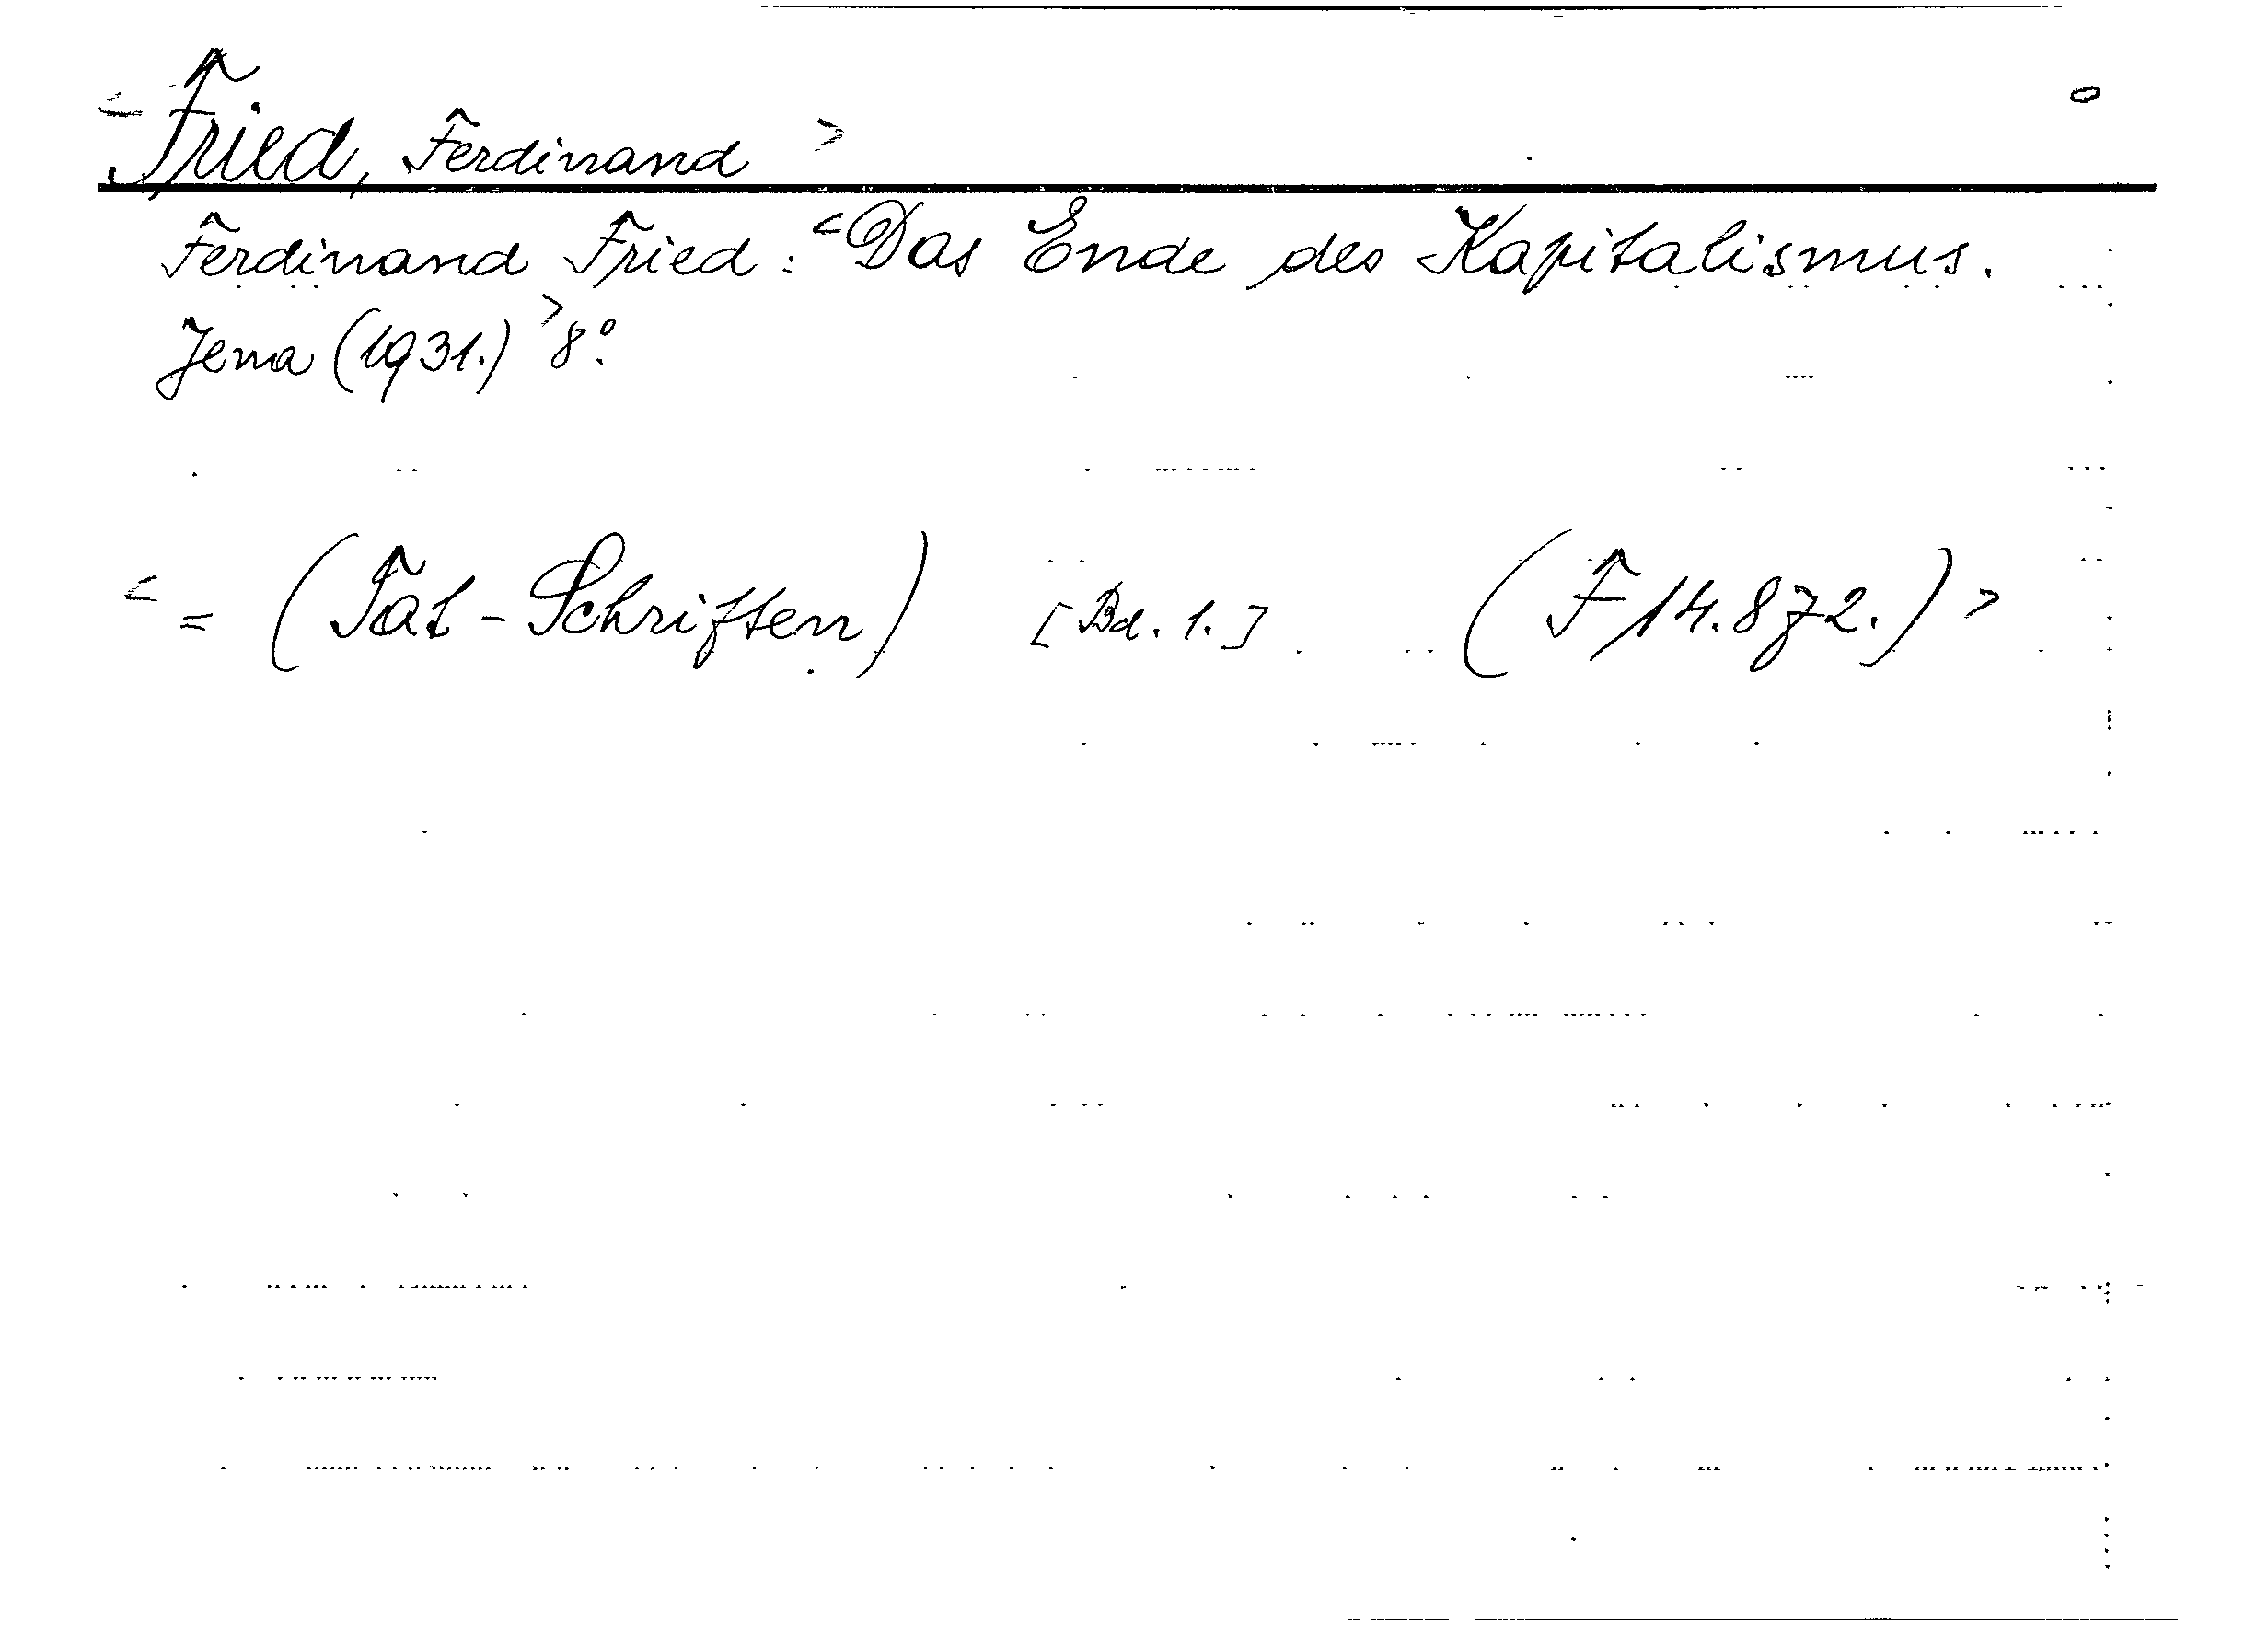 < Fried, Ferdinand > o
Ferdinand Fried: <Das Ende des Kapitalismus.
Jena (1931.)> 8°.
< = (Tat-Schriften) [Bd. 1.] (F 14.872.) >